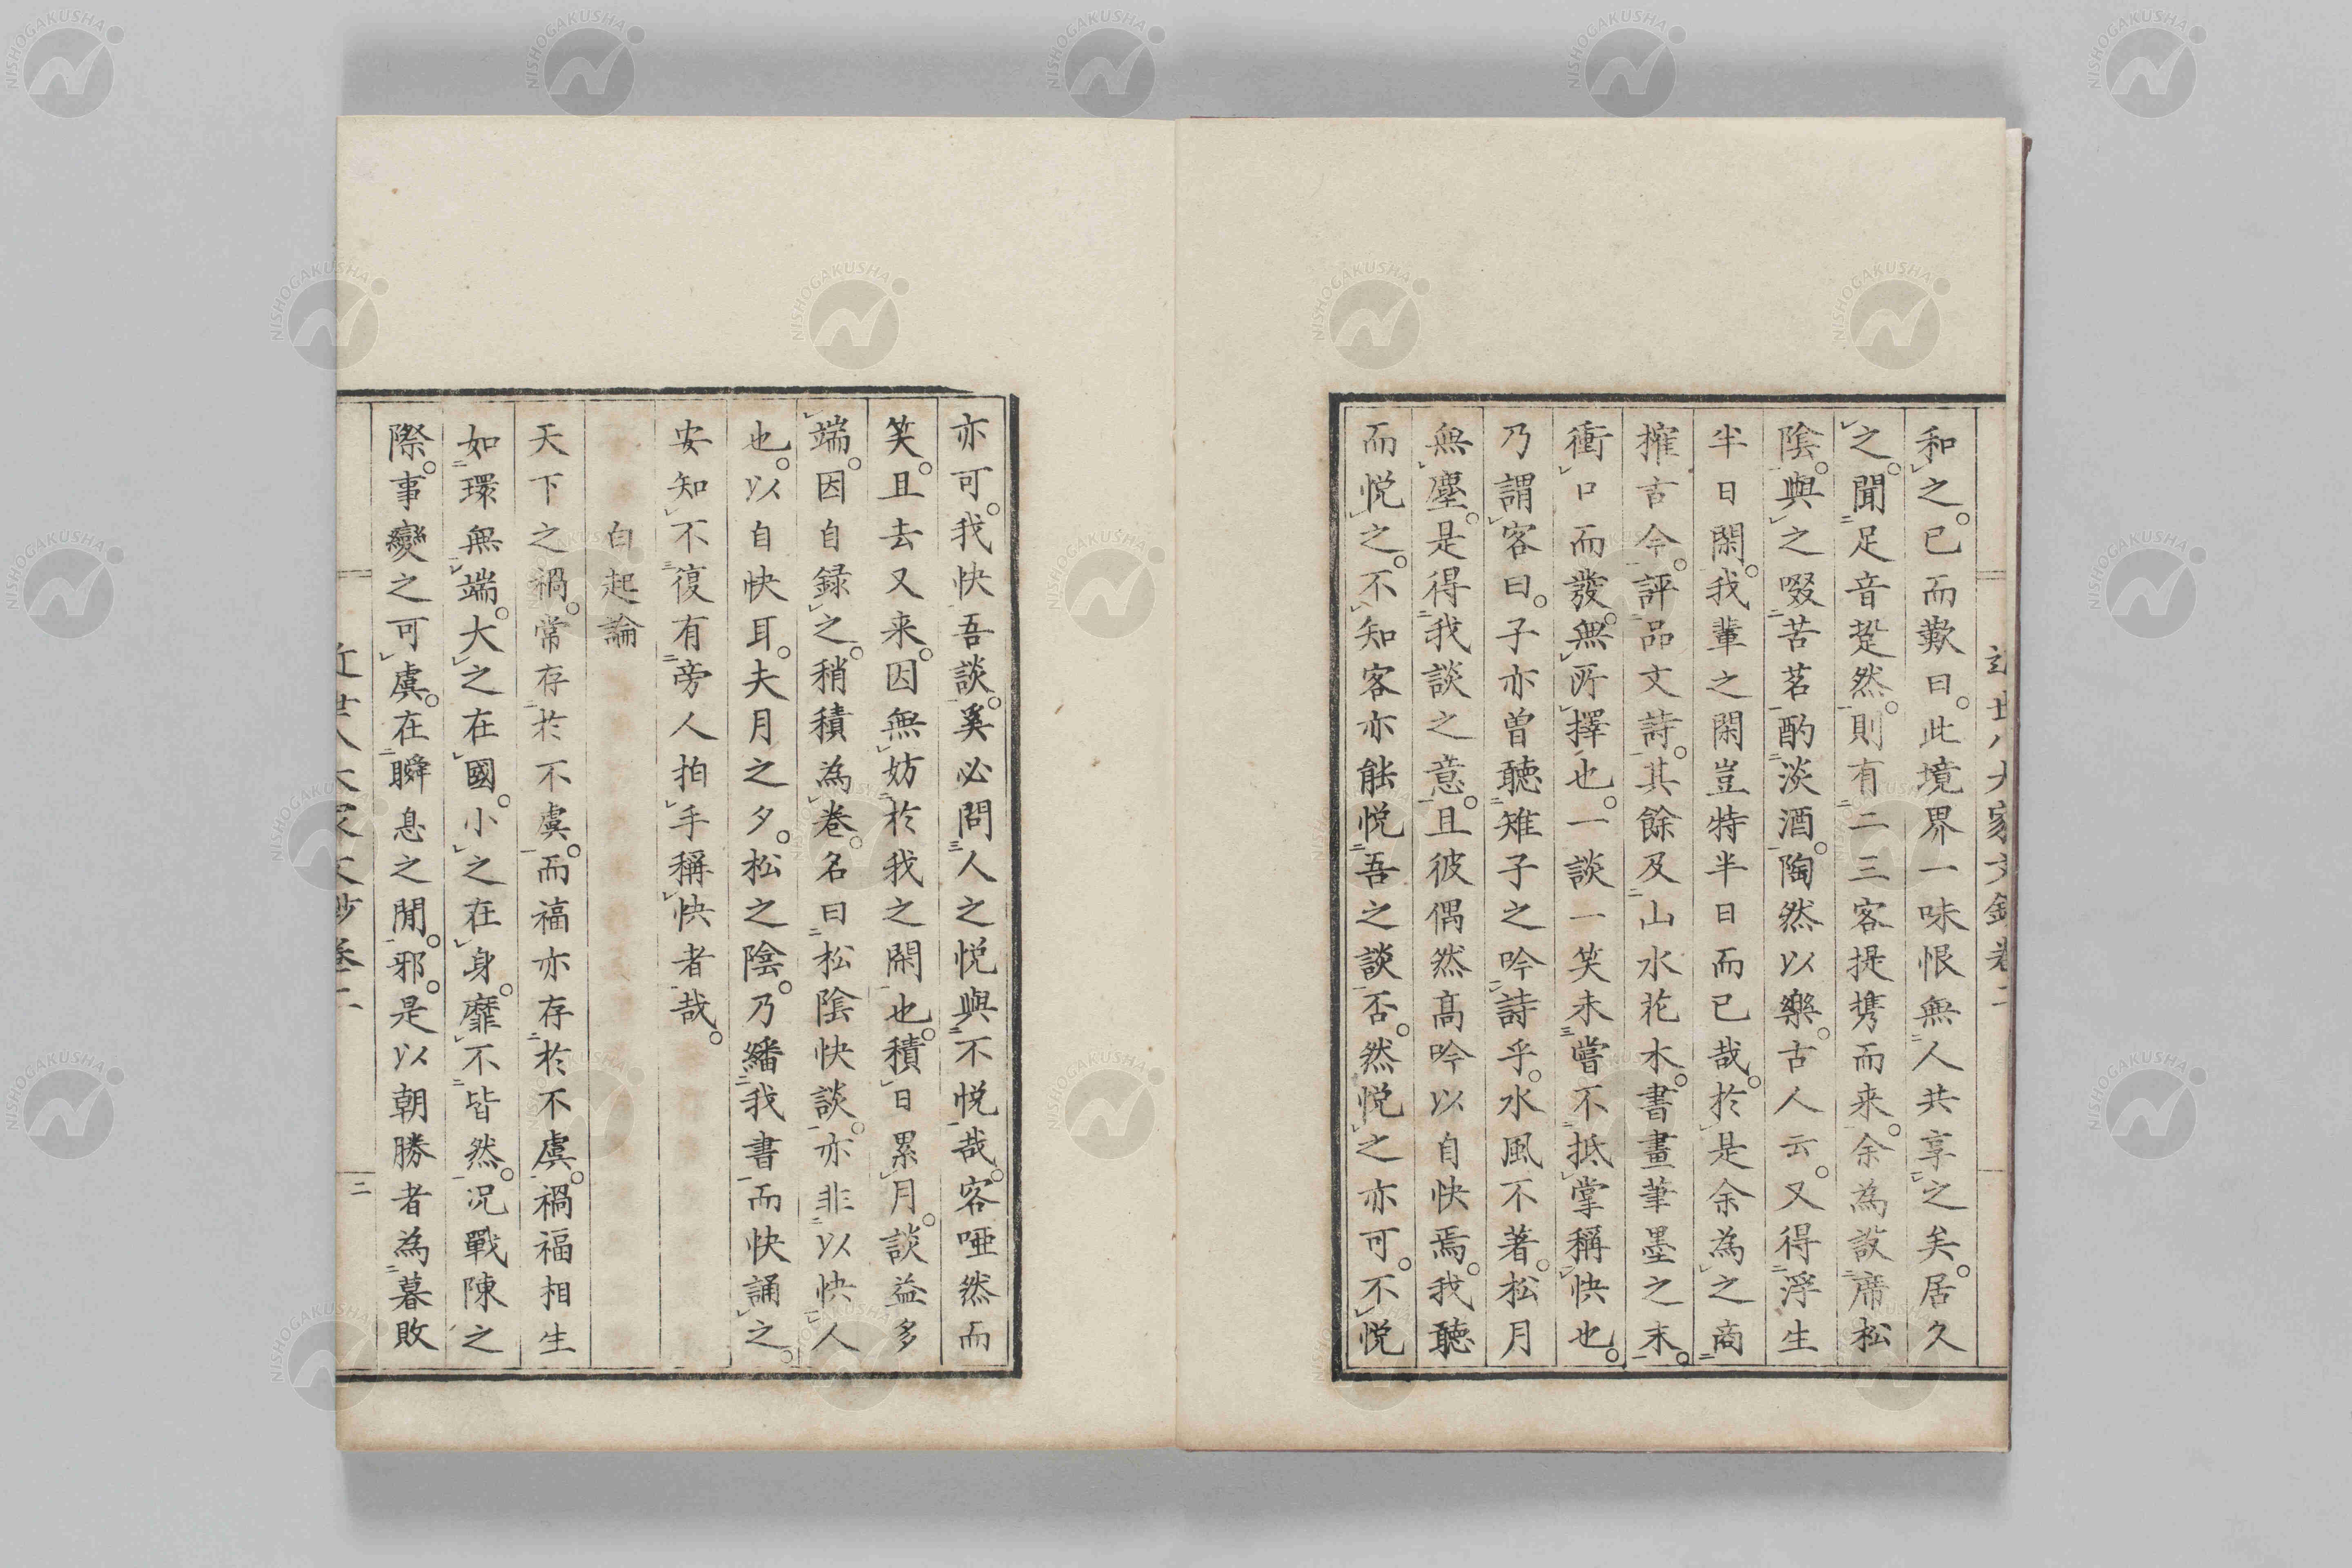 和之。已而歎曰。此境界一味恨無人共享之矣。居久
之。聞足音跫然。則有二三客提携而来。余為設席松
陰。與之啜苦茗酌淡酒。陶然以樂。古人云。又得浮生
半日閑。我輩之閑豈特半日而已哉。於是余為之商
搉古今。評品文詩。其餘及山水花木。書畫筆墨之末。
衝口而發。無所擇也。一談一笑未嘗不抵掌稱快也。
乃謂客曰。子亦曽聴雉子之吟詩乎。水風不著。松月
無塵。是得我談之意。且彼偶然高吟以自快焉。我聴
而悦之。不知客亦能悦吾之談否。然悦之亦可。不悦
亦可。我快吾談。奚必問人之悦與不悦哉。客唖然而
笑。且去又来。因無妨於我之閑也。積日累月。談益多
端。因自録之。稍積為巻。名曰松陰快談。亦非以快人
也。以自快耳。夫月之夕。松之陰。乃繙我書而快誦之。
安知不復有旁人拍手稱快者哉。
白起論
天下之禍。常存於不虞。而福亦存於不虞。禍福相生
如環無端。大之在國。小之在身。靡不皆然。况戰陳之
際。事變之可虞。在瞬息之間。邪。是以朝勝者為暮敗
二
NISHOGAKUSHA